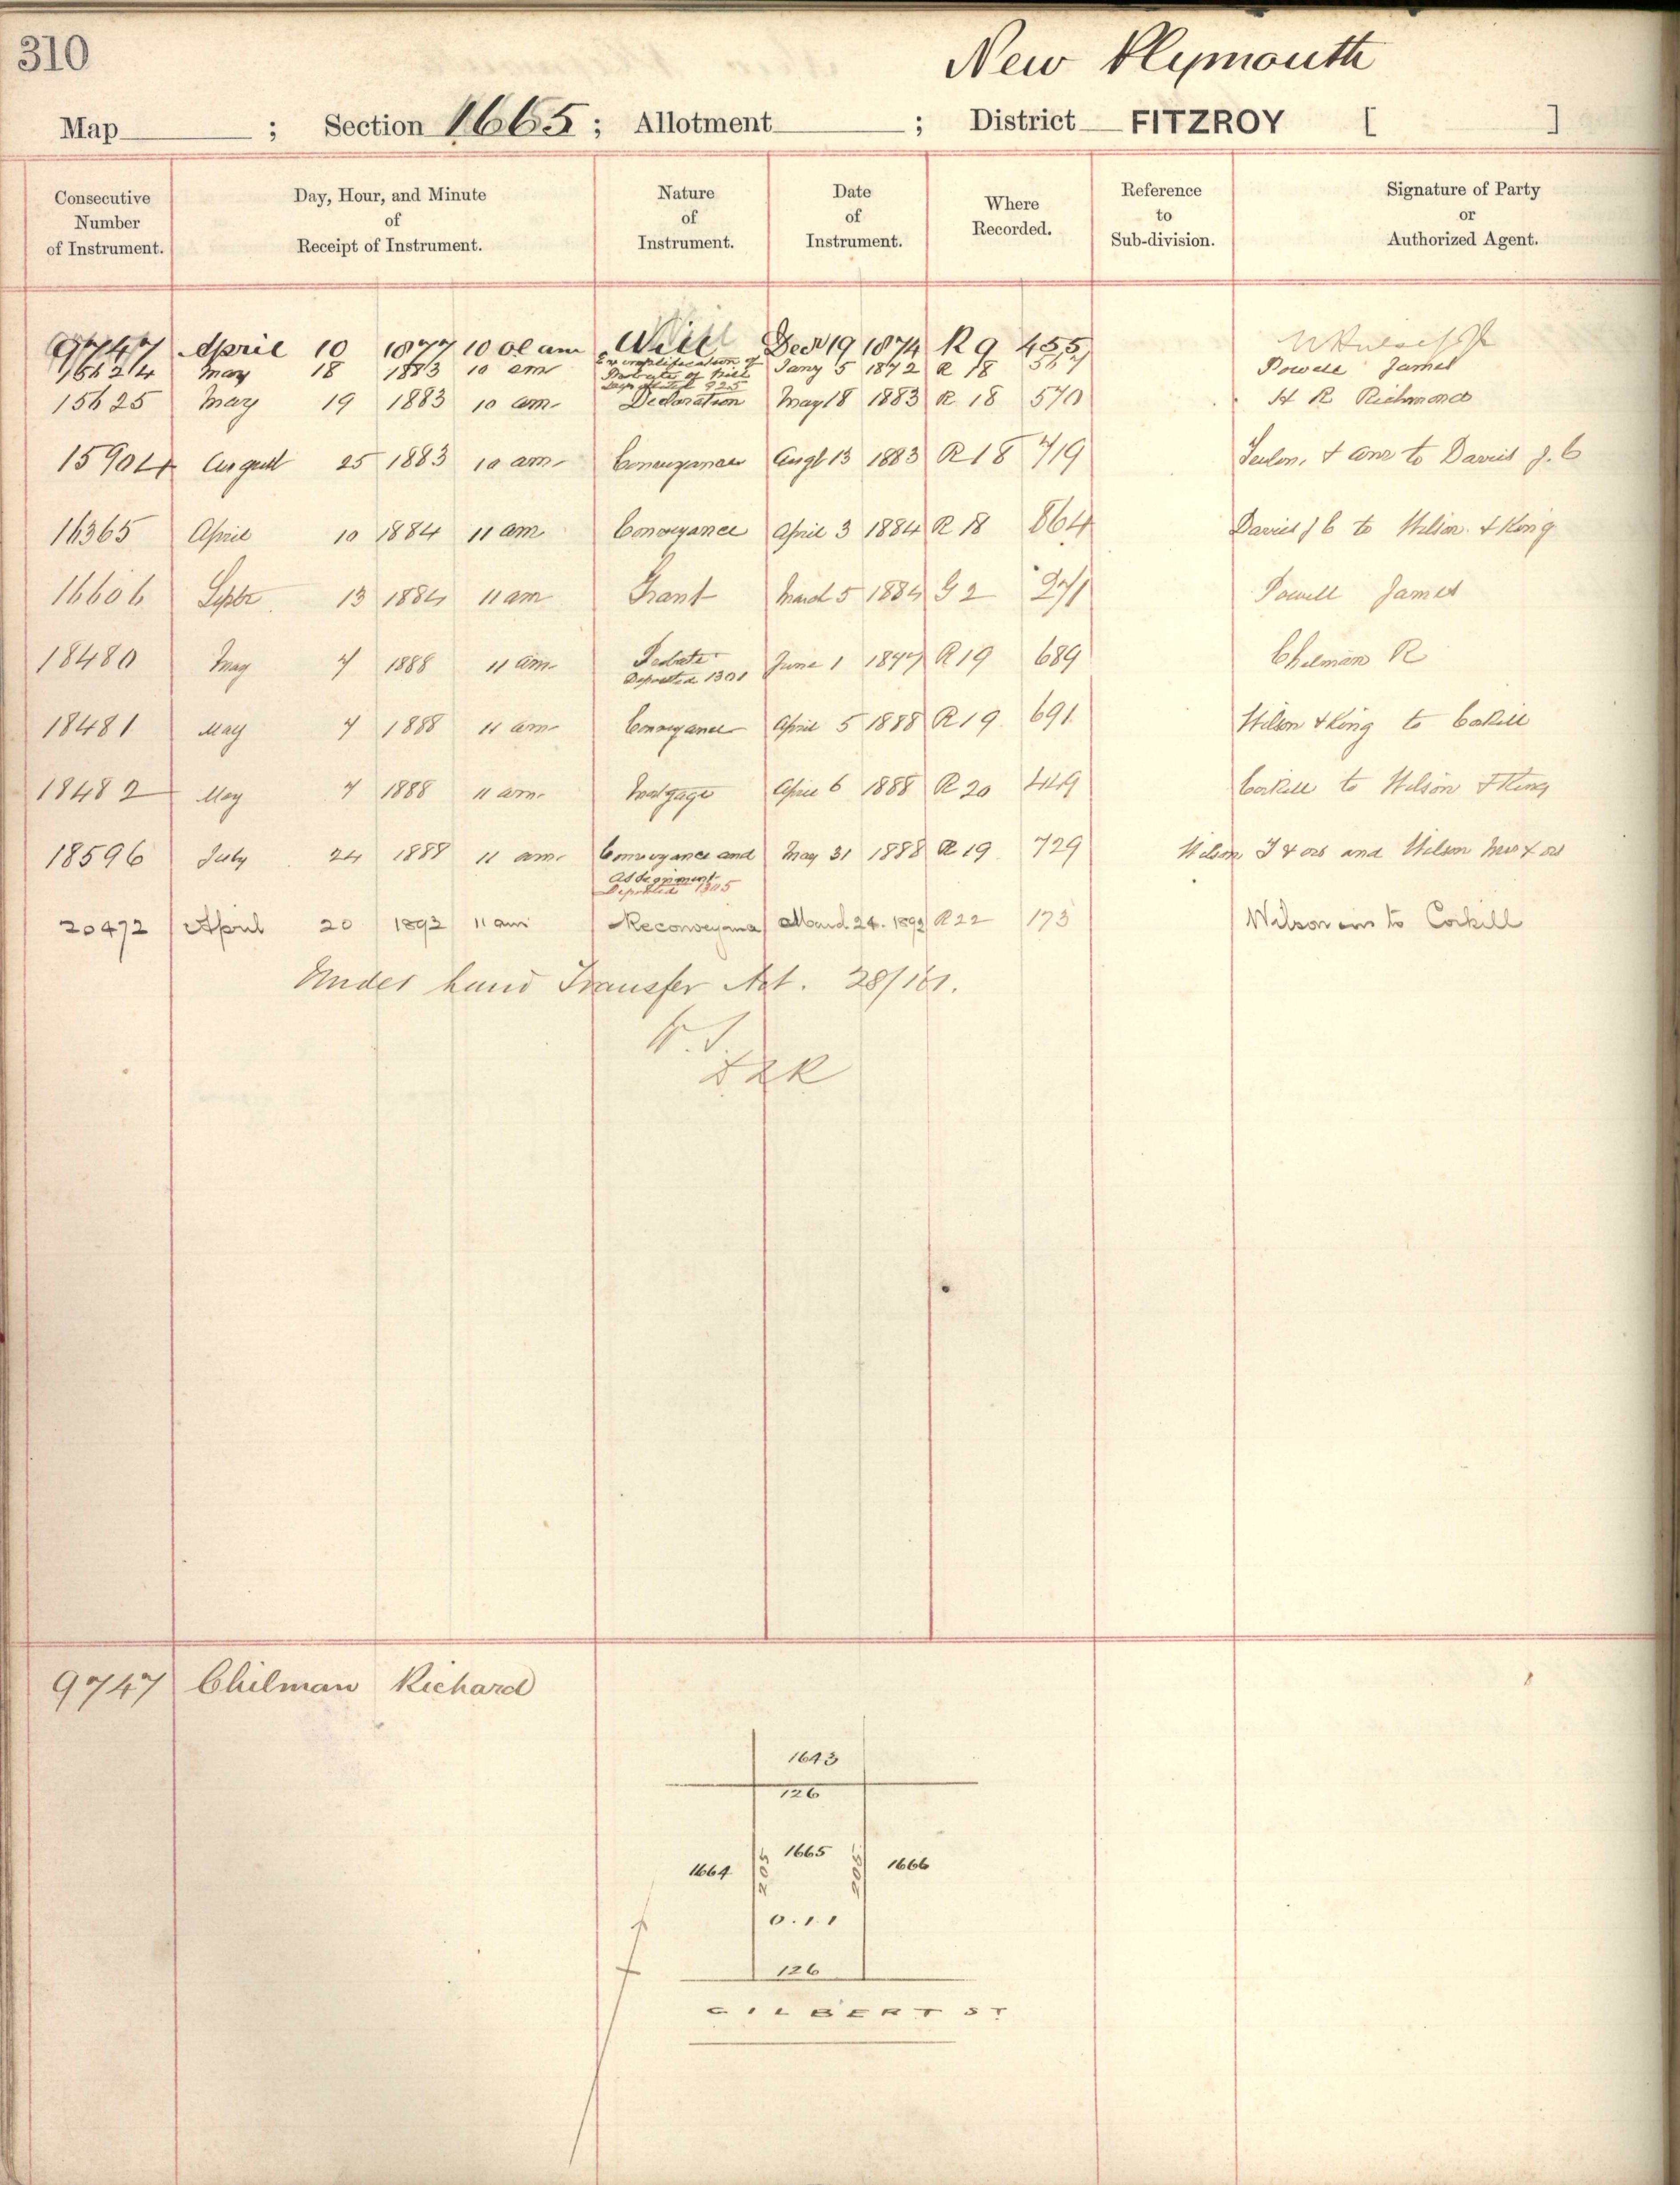 310
New Plymouth
Map ; Section 1665 ; Allotment ; District FITZROY [ ]
Consecutive Number of Instrument.
Day, Hour, and Minute of Receipt of Instrument.
Nature of Instrument.
Date of Instrument.
Where Recorded.
Reference to Sub-division.
Signature of Party or Authorized Agent.
9747 April 10 1877 10 am Will Decr 19 1874 R 9 455
May 18 1883 10 am Exemplification of Probate of Will Jany 5 1872 R 18 567 Powell James
15625 May 19 1883 10 am Declaration May 18 1883 R 18 570 H R Richmond
15904 August 25 1883 10 am Conveyance Augt 13 1883 R 18 719 & anr to Davies J. C
16365 April 10 1884 11 am Conveyance April 3 1884 R 18 864 Davies J C to Wilson & King
16606 Septr 13 1884 11 am Grant March 5 1884 G 2 271 Powell James
18480 May 7 1888 11 am Probate June 1 1877 R 19 689 Chilman R
Deposited 1301
18481 May 7 1888 11 am Conveyance April 5 1888 R 19 691 Wilson & King to Corkill
18482 May 7 1888 11 am Mortgage April 6 1888 R 20 449 Corkill to Wilson & King
18596 July 24 1888 11 am Conveyance and May 31 1888 R 19 729 Wilson T & ors and Wilson Mrs & ors
Assignment
Deposited 1305
20472 April 20 1892 11 am Reconveyance March 24. 1892 R 22 173 Wilson to Corkill
Under Land Transfer Act. 28/161.
9747 Chilman Richard
1643
126
1665
1664
205
205
1666
0.1.1
126
GILBERT ST